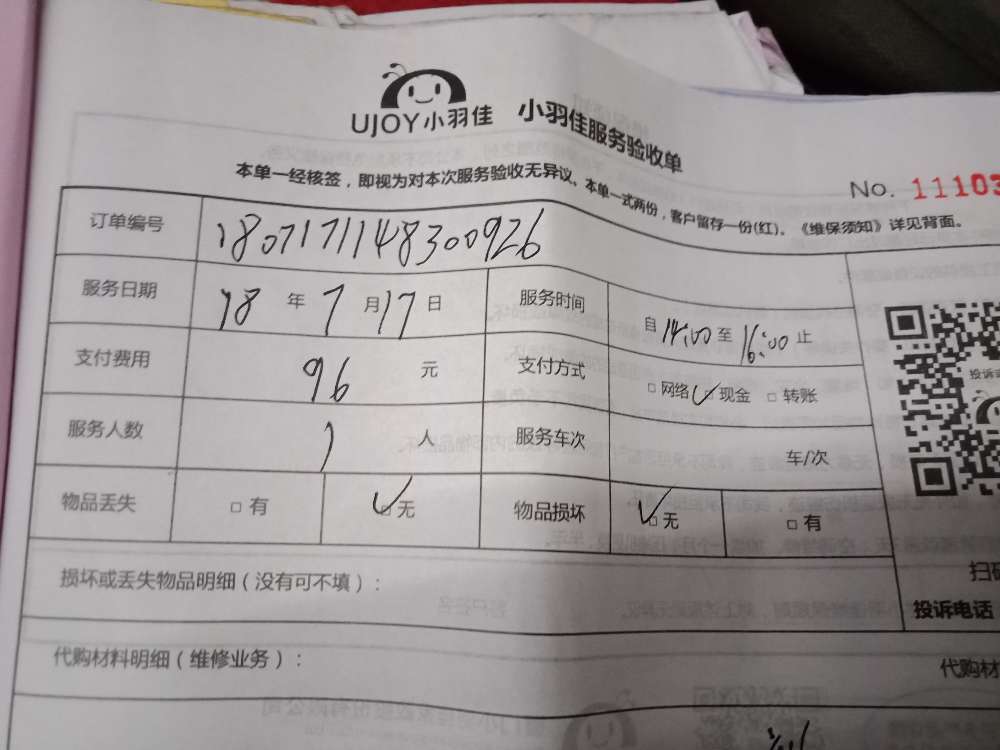 UJOY小羽佳 小羽佳服务验收单
本单一经核签，即视为对本次服务验收无异议。本单一式两份，客户留存一份(红)。《维保须知》详见背面。
No. 11103
订单编号 1807171148300926
服务日期 18 年 7 月 17 日 服务时间 自 14:00 至 16:00 止
支付费用 96 元 支付方式 □网络 ☑现金 □转账
服务人数 1 人 服务车次 车/次
物品丢失 □有 ☑无 物品损坏 ☑无 □有
投诉
损坏或丢失物品明细（没有可不填）：
扫码
投诉电话
代购材料明细（维修业务）：
代购材